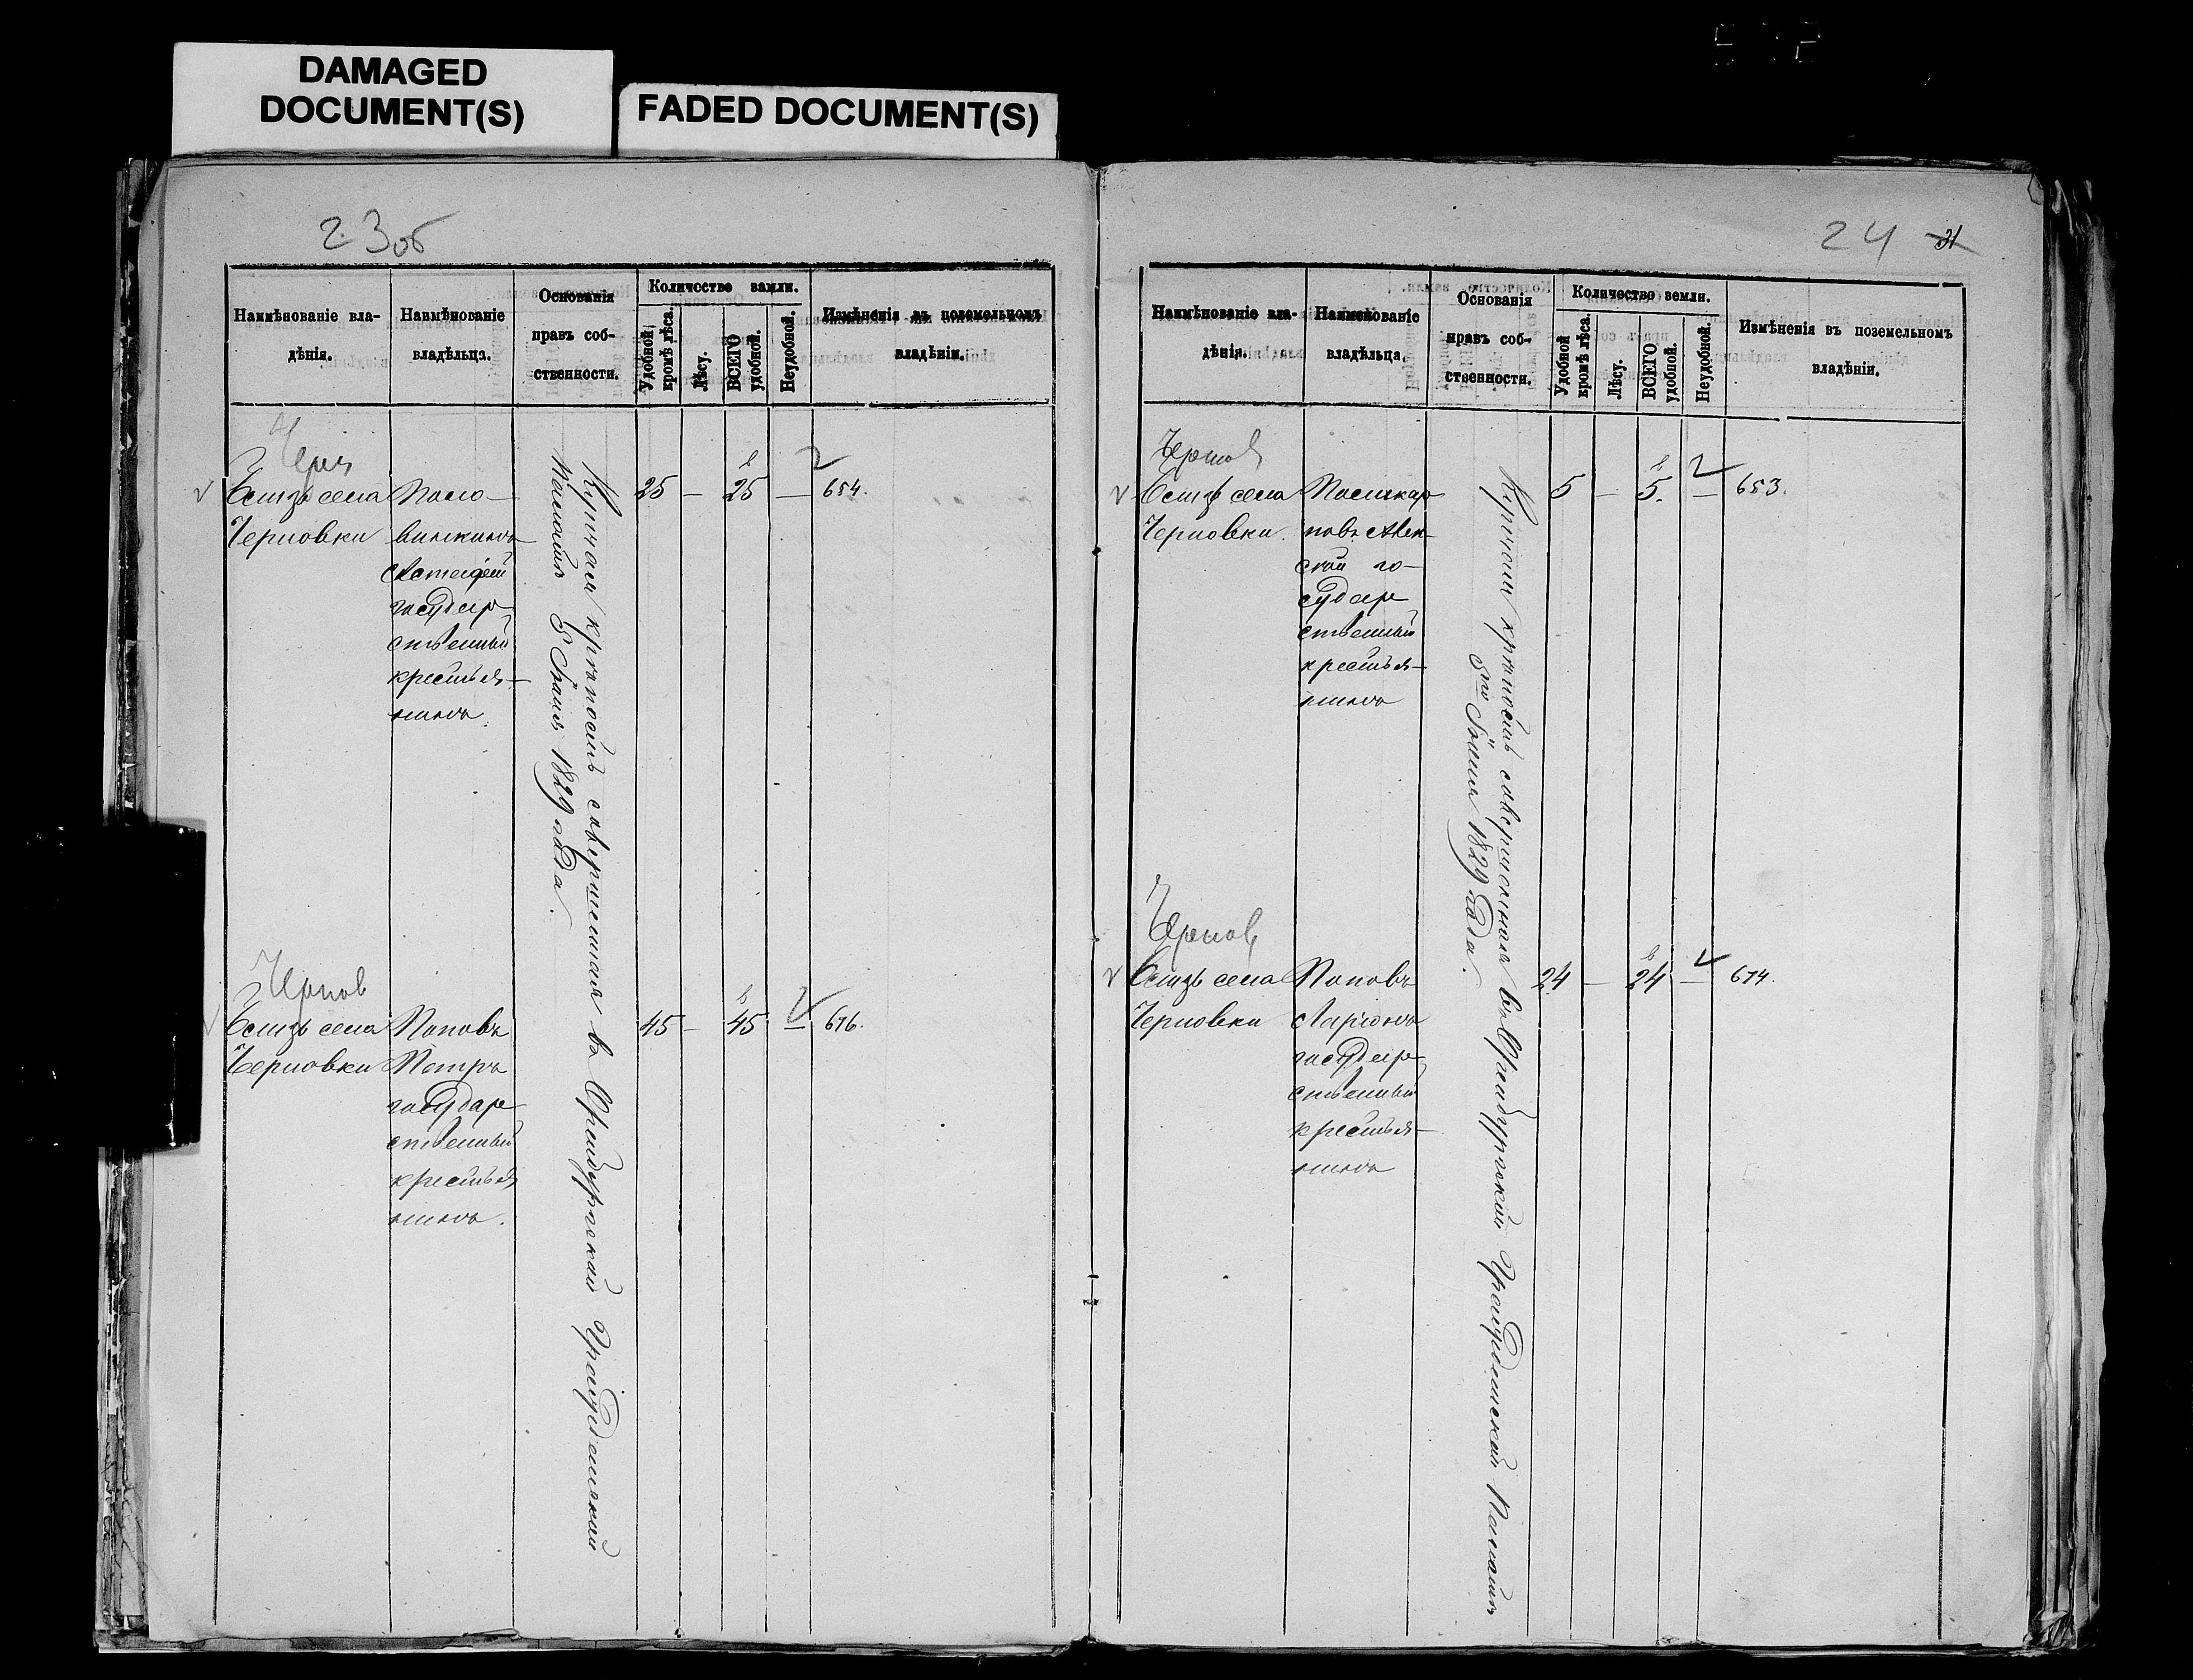 DAMAGED
DOCUMENT(S)
FADED DOCUMENT(S)
23об
Наимѣнованіе вла-
дѣнія.
Наимѣнованіе
владѣльца.
Основанія
правъ соб-
ственности.
Количество земли.
Удобной
кромѣ лѣса.
Лѣсу.
ВСЕГО
удобной.
Неудобной.
Измѣненія въ поземельномъ
владѣніи.
Близь села
Черновки
государ-
ственный
крестья-
нинъ.
Купчая крѣпость совершенная въ Оренбургской Гражданской
Палатѣ 5 Іюня 1829 года.
25 — 25 — 654.
Чернов
Близь села
Черновки
Поповъ
Петръ
государ
ственный
крестья
нинъ.
45 — 45 — 676.
24 31
Наимѣнованіе вла-
дѣнія.
Наименованіе
владѣльца.
Основанія
правъ соб-
ственности.
Количество земли.
Удобной
кромѣ лѣса.
Лѣсу.
ВСЕГО
удобной.
Неудобной.
Измѣненія въ поземельномъ
владѣніи.
Чернов
Близь села
Черновки.
го-
судар
ственный
крестья-
нинъ
Купчая крѣпость совершенная въ Оренбургской Гражданской Палатѣ
5го Іюня 1829 года.
5 — 5. — 653.
Чернов
Близь села
Черновки
Поповъ
Ларіонъ
государ
ственный
крестья-
нинъ
24 — 24 — 674.